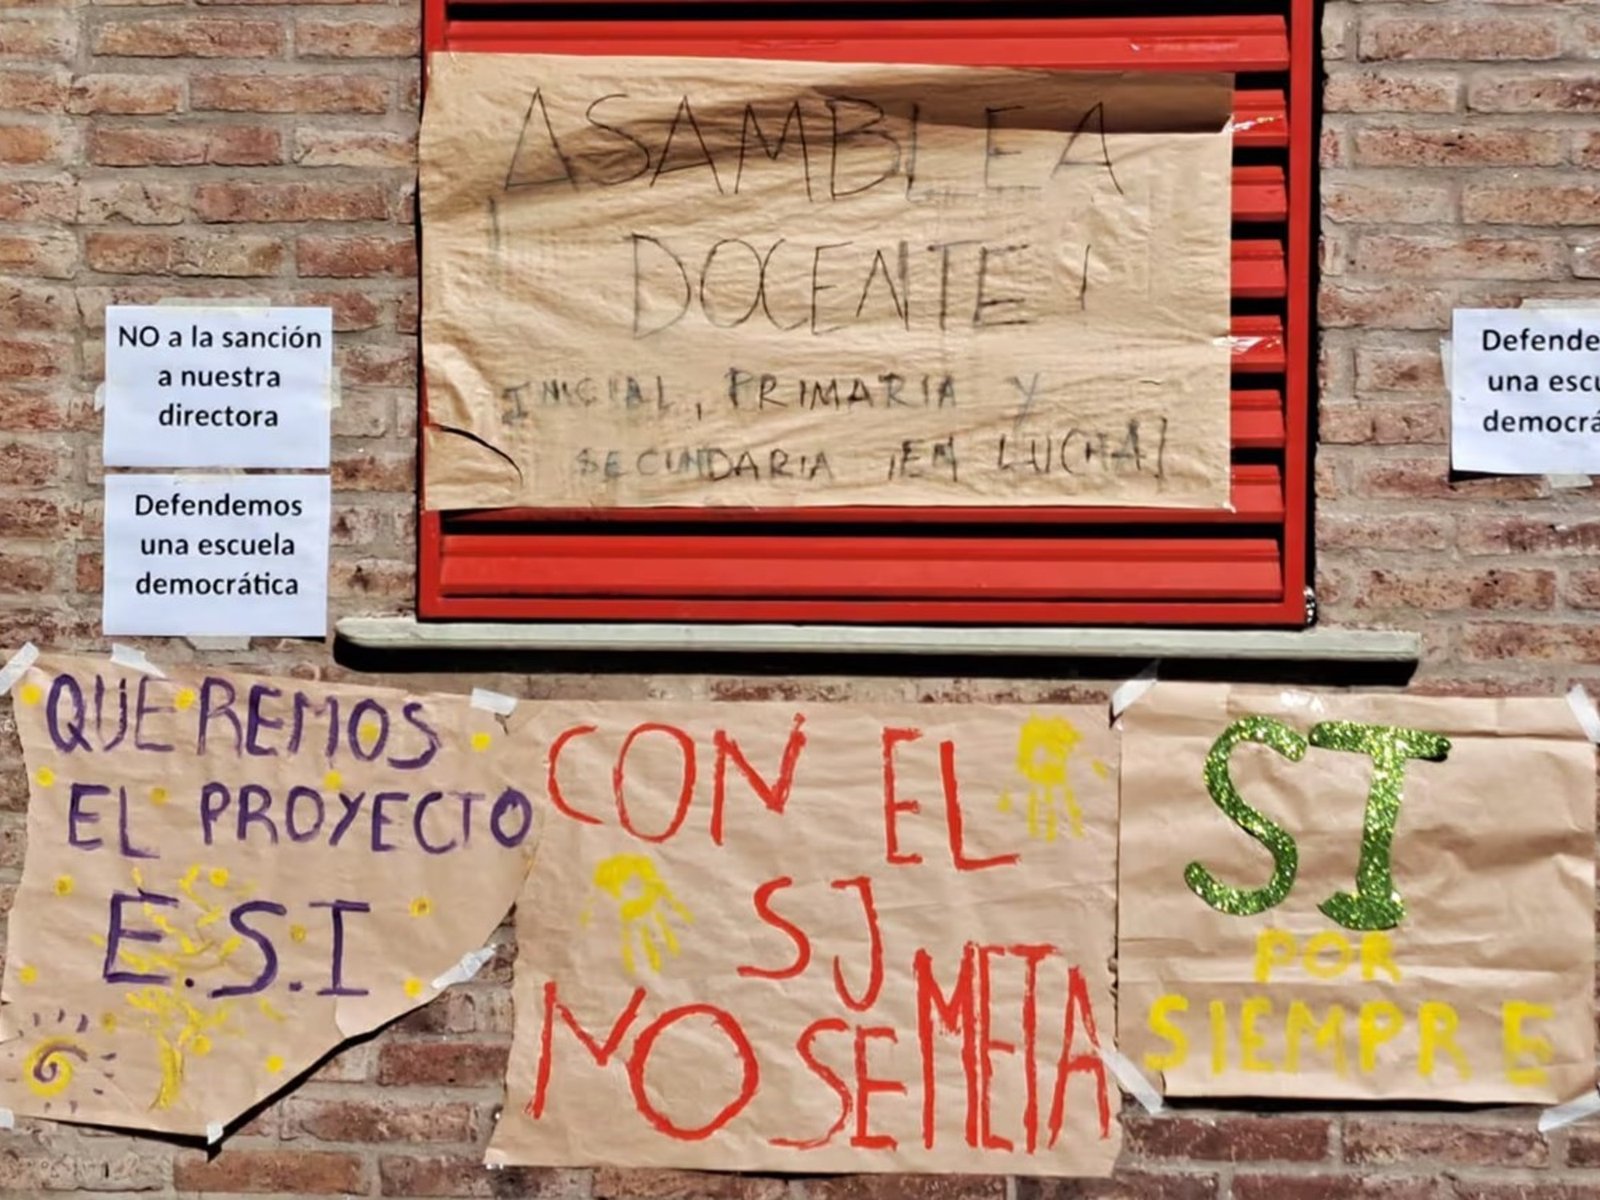 ASAMBLEA
¡ DOCENTE !
INICIAL, PRIMARIA Y
SECUNDARIA ¡EN LUCHA!
NO a la sanción
a nuestra
directora
Defendemos
una escuela
democrática
Defende
una escu
democrá
QUEREMOS
EL PROYECTO
E.S.I
CON EL
SJ
NO SE META
SI
POR
SIEMPRE